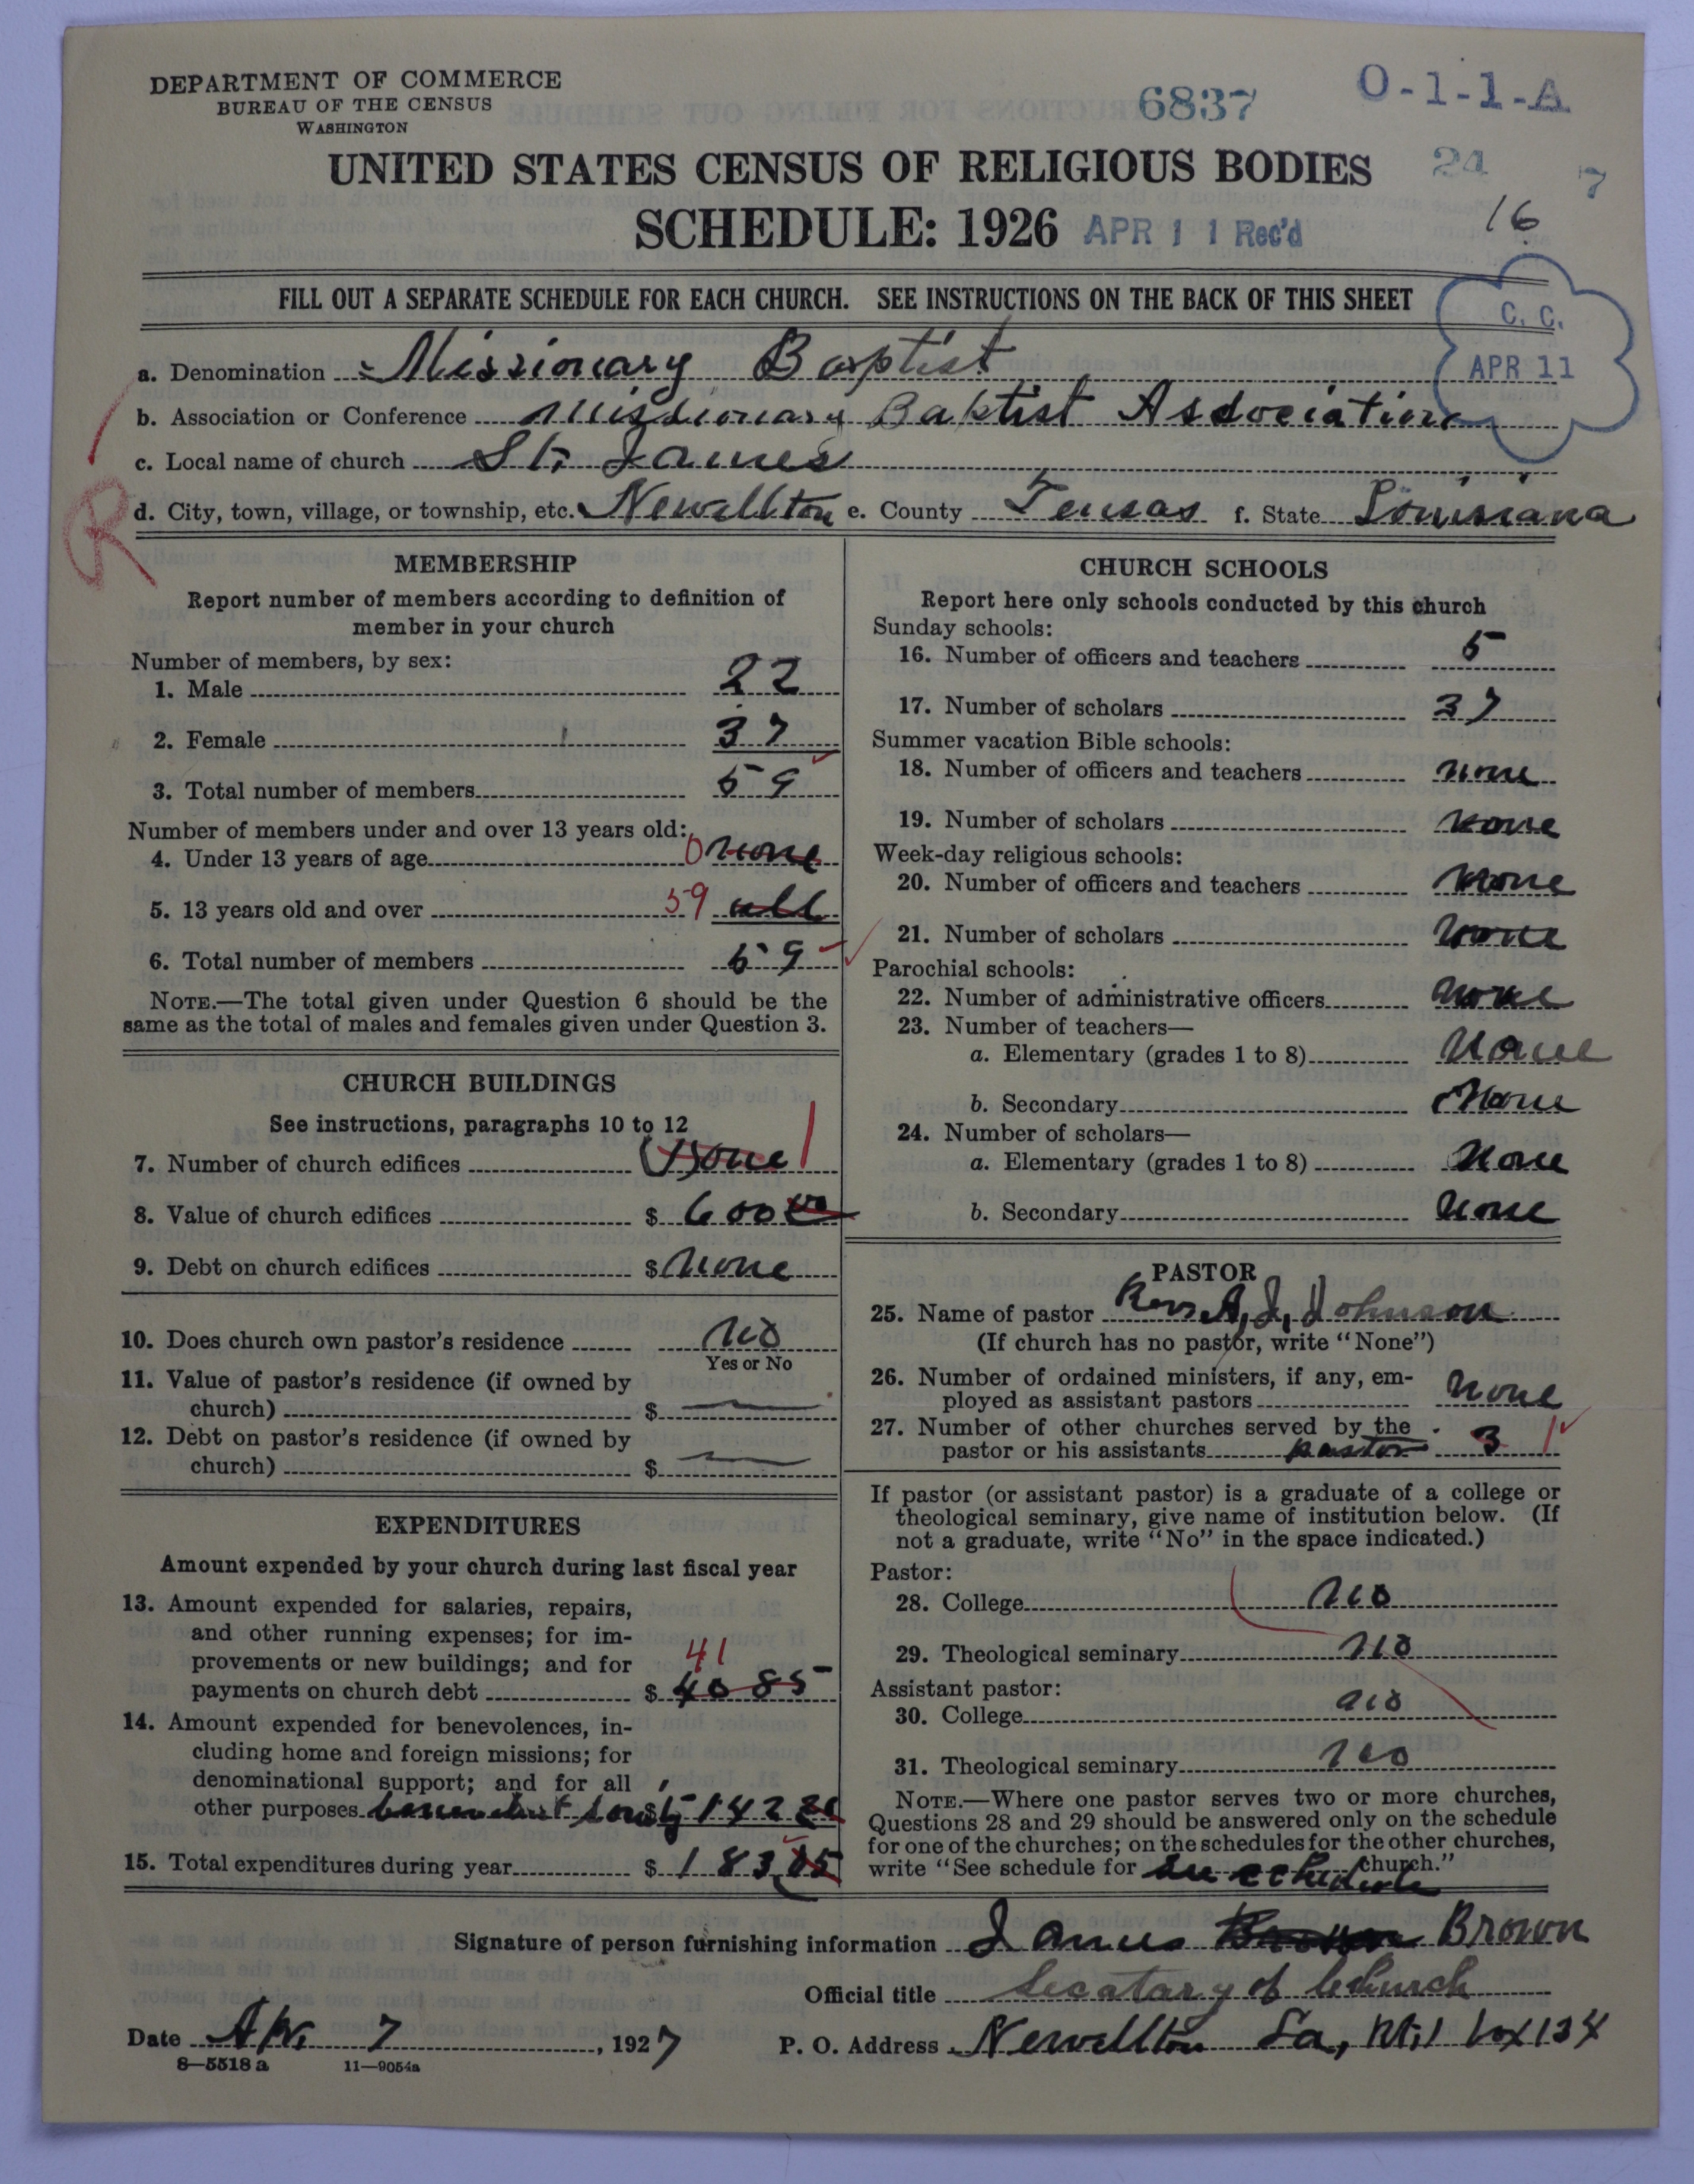 DEPARTMENT OF COMMERCE
BUREAU OF THE CENSUS
WASHINGTON
6837
O-1-1-A
UNITED STATES CENSUS OF RELIGIOUS BODIES
24 7
SCHEDULE: 1926 APR 11 Rec'd
16
FILL OUT A SEPARATE SCHEDULE FOR EACH CHURCH. SEE INSTRUCTIONS ON THE BACK OF THIS SHEET
C. C.
APR 11
a. Denomination Missionary Baptist
b. Association or Conference Missionary Baptist Association
c. Local name of church St. James
R
d. City, town, village, or township, etc. Newellton e. County Tensas f. State Louisiana
MEMBERSHIP
Report number of members according to definition of
member in your church
Number of members, by sex:
1. Male 22
2. Female 37
3. Total number of members 59
Number of members under and over 13 years old:
4. Under 13 years of age 0 none
5. 13 years old and over 59 all
6. Total number of members 59
NOTE.—The total given under Question 6 should be the
same as the total of males and females given under Question 3.
CHURCH BUILDINGS
See instructions, paragraphs 10 to 12
7. Number of church edifices 1
8. Value of church edifices $ 600
9. Debt on church edifices $ none
10. Does church own pastor's residence no
Yes or No
11. Value of pastor's residence (if owned by
church) $
12. Debt on pastor's residence (if owned by
church) $
EXPENDITURES
Amount expended by your church during last fiscal year
13. Amount expended for salaries, repairs,
and other running expenses; for im-
provements or new buildings; and for 41
payments on church debt $ 40 85
14. Amount expended for benevolences, in-
cluding home and foreign missions; for
denominational support; and for all
other purposes $ 142
15. Total expenditures during year $ 183 05
CHURCH SCHOOLS
Report here only schools conducted by this church
Sunday schools:
16. Number of officers and teachers 5
17. Number of scholars 37
Summer vacation Bible schools:
18. Number of officers and teachers none
19. Number of scholars none
Week-day religious schools:
20. Number of officers and teachers none
21. Number of scholars none
Parochial schools:
22. Number of administrative officers none
23. Number of teachers—
a. Elementary (grades 1 to 8) None
b. Secondary None
24. Number of scholars—
a. Elementary (grades 1 to 8) None
b. Secondary none
PASTOR
25. Name of pastor Rev. A. J. Johnson
(If church has no pastor, write "None")
26. Number of ordained ministers, if any, em-
ployed as assistant pastors none
27. Number of other churches served by the
pastor or his assistants pastor 3 1
If pastor (or assistant pastor) is a graduate of a college or
theological seminary, give name of institution below. (If
not a graduate, write "No" in the space indicated.)
Pastor:
28. College no
29. Theological seminary no
Assistant pastor:
30. College no
31. Theological seminary no
NOTE.—Where one pastor serves two or more churches,
Questions 28 and 29 should be answered only on the schedule
for one of the churches; on the schedules for the other churches,
write "See schedule for see schedule church."
Signature of person furnishing information James Brown Brown
Official title Secatary of Church
Date Apr. 7, 1927 P. O. Address Newellton La, Rt. 1 box 134
8—5518 a 11—9054a